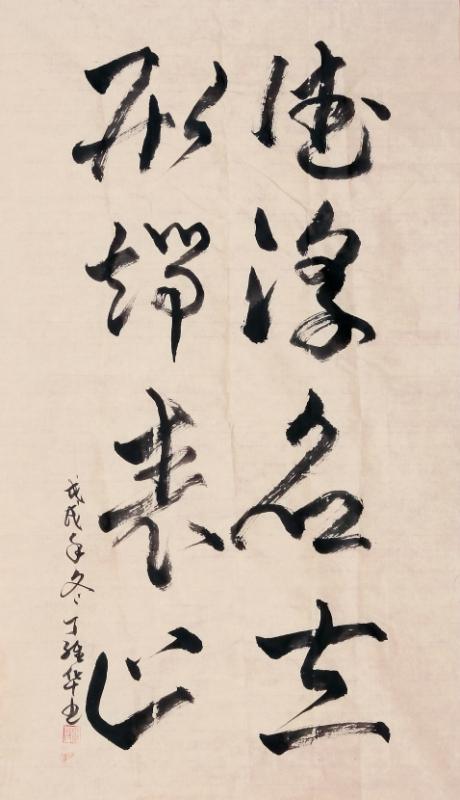 德建名立
形端表正
戊戌年冬 丁华书